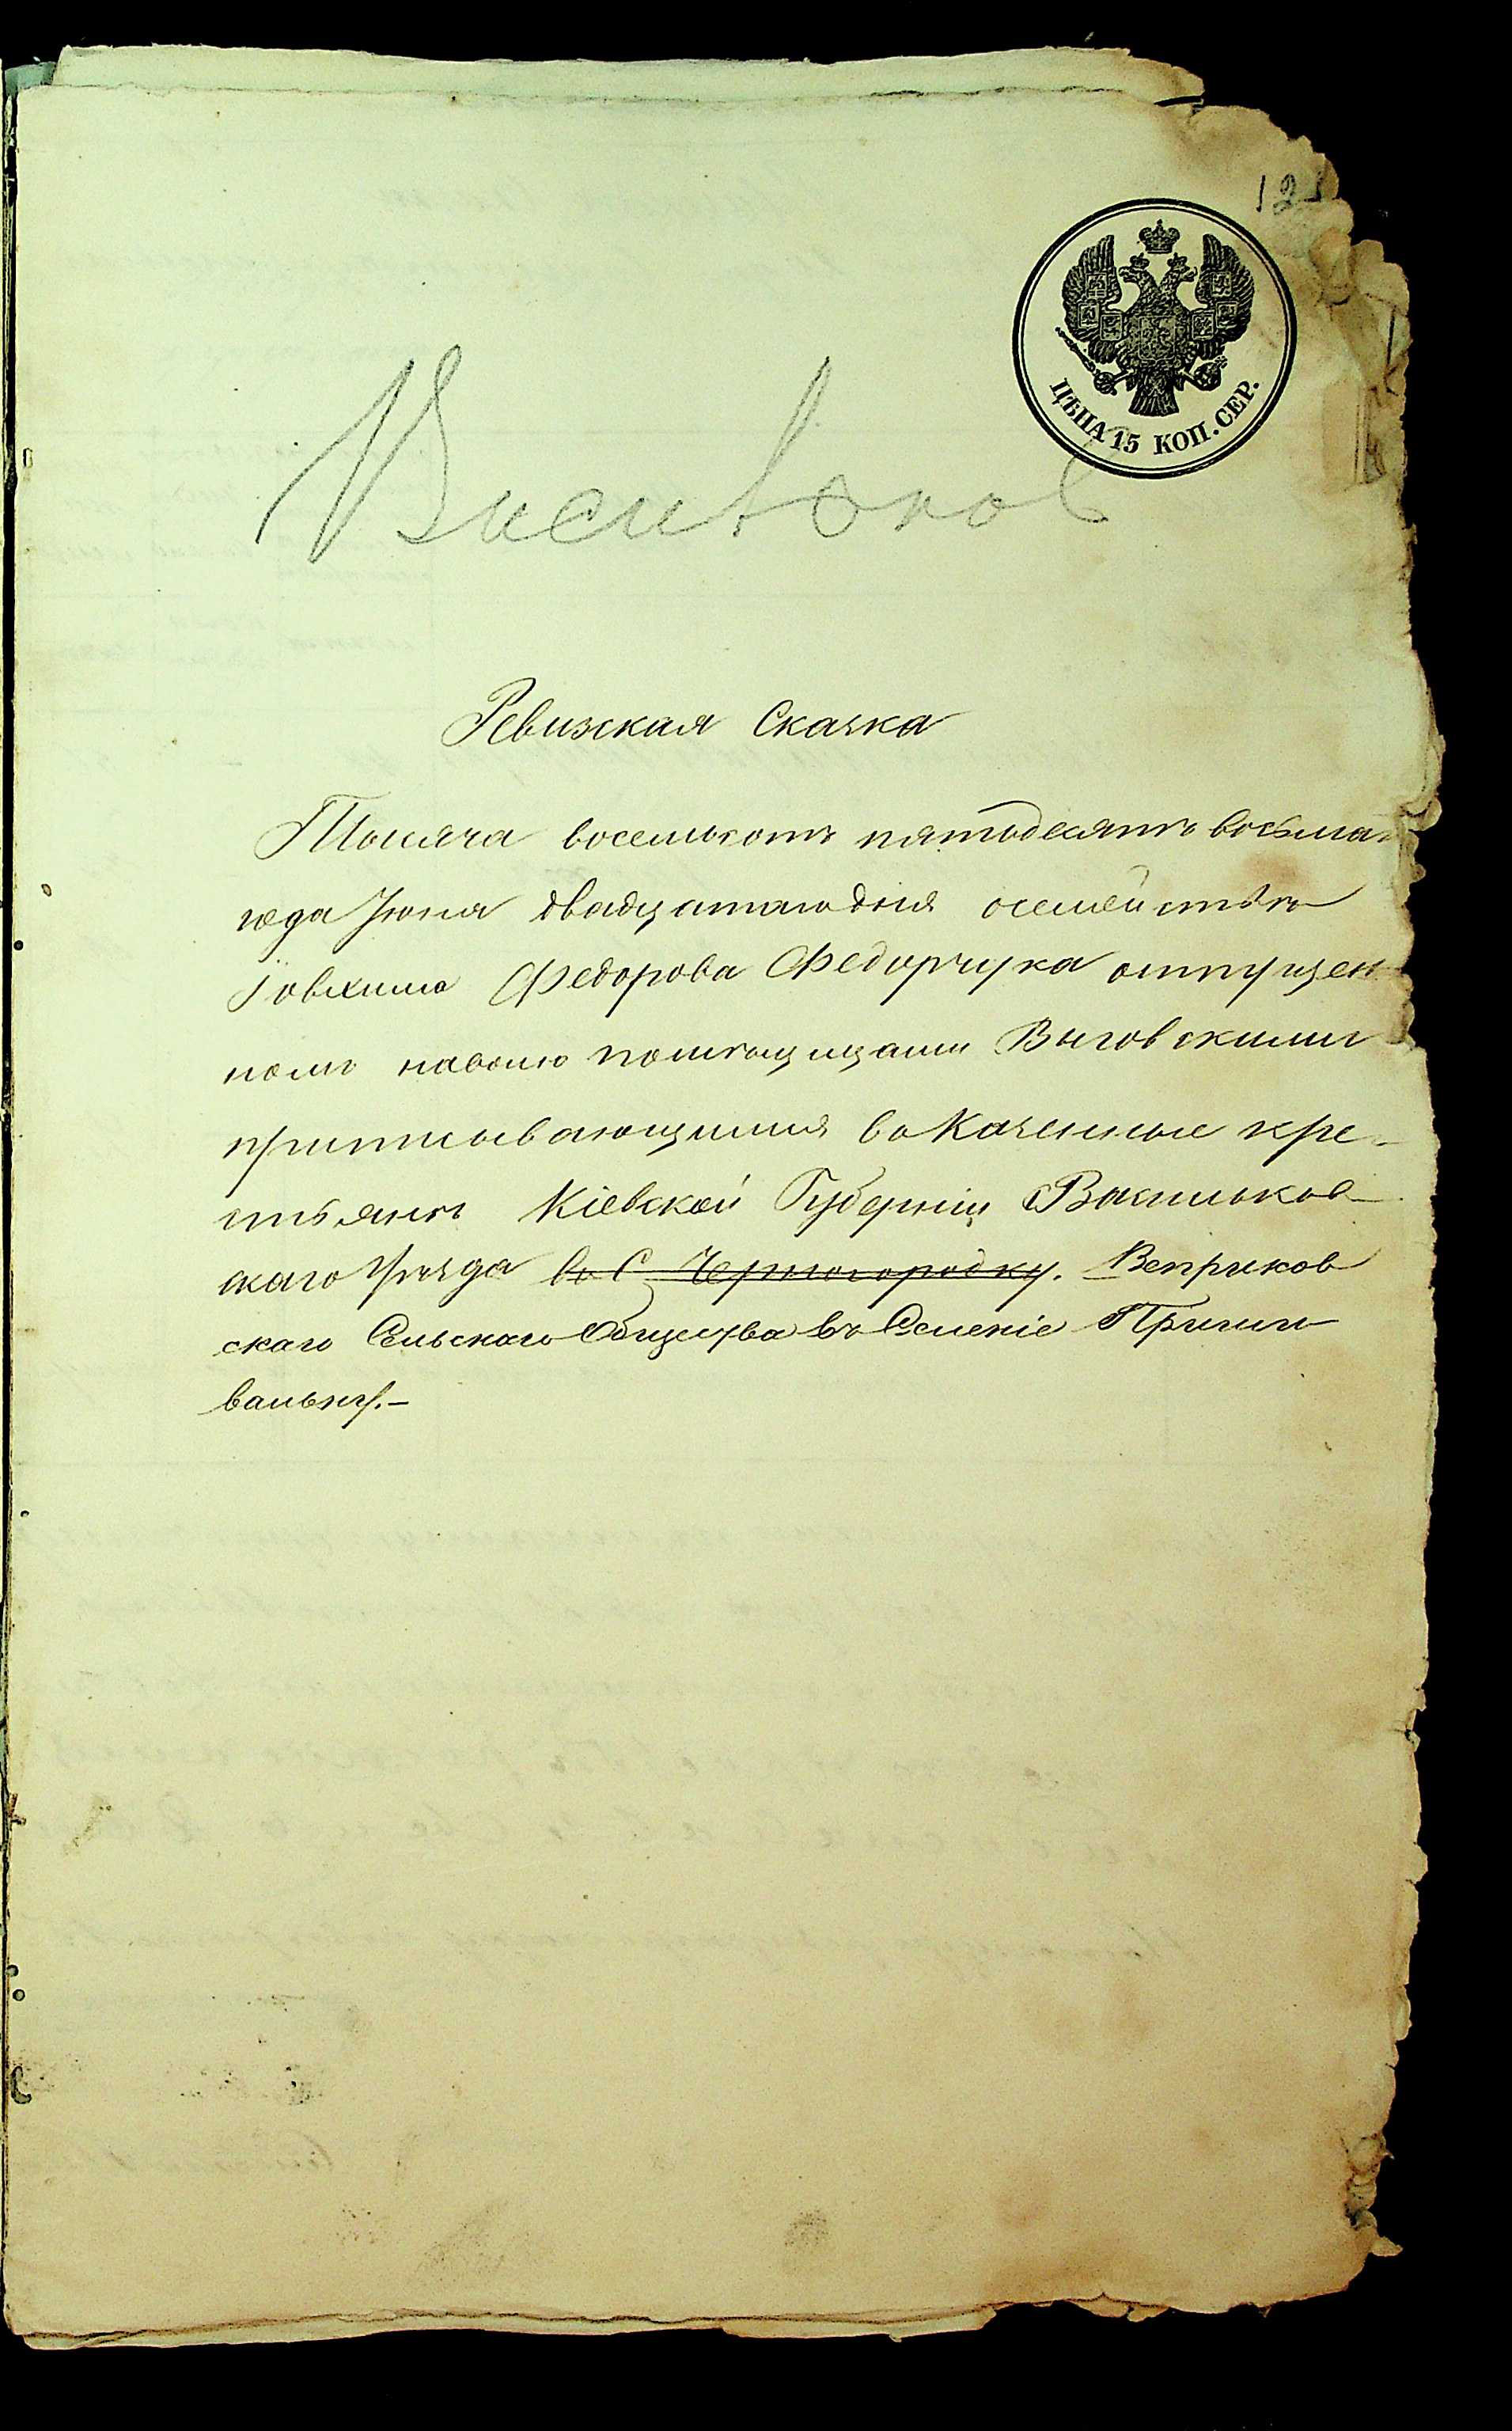 121
ЦѢНА 15 КОП. СЕР.
Ревизская Сказка
Тысяча восемьсотъ пятьдесятъ восьма
года Іюня двадцатаго дня о семействѣ
Іовхима Федорова Федорчука отпущен
номъ наволю помѣщицами Выговскими
приписывающимся въ Казенные кре-
стьяне Кіевской Губерніи Васильков
скаго Уѣзда въ С. Черногородку. Веприков
скаго Сельскаго Общества въ Селеніе Приши
вальну.-